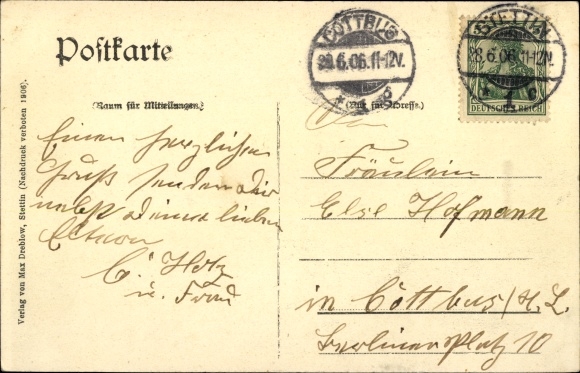 Postkarte
(Raum für Mitteilungen.)
(Nur für Adresse.)
COTTBUS
29.6.06.11-12V.
* 6
STETTIN
28.6.06.11-12N.
* 1 c
DEUTSCHES REICH
Einen herzlichen
Gruß senden Dir
nebst Deinen lieben
Eltern
C. Hotz
u. Frau
An
Fräulein
Else Hofmann
in Cottbus/N. L.
Berliner Platz 10
Verlag von Max Dreblow, Stettin (Nachdruck verboten 1906).